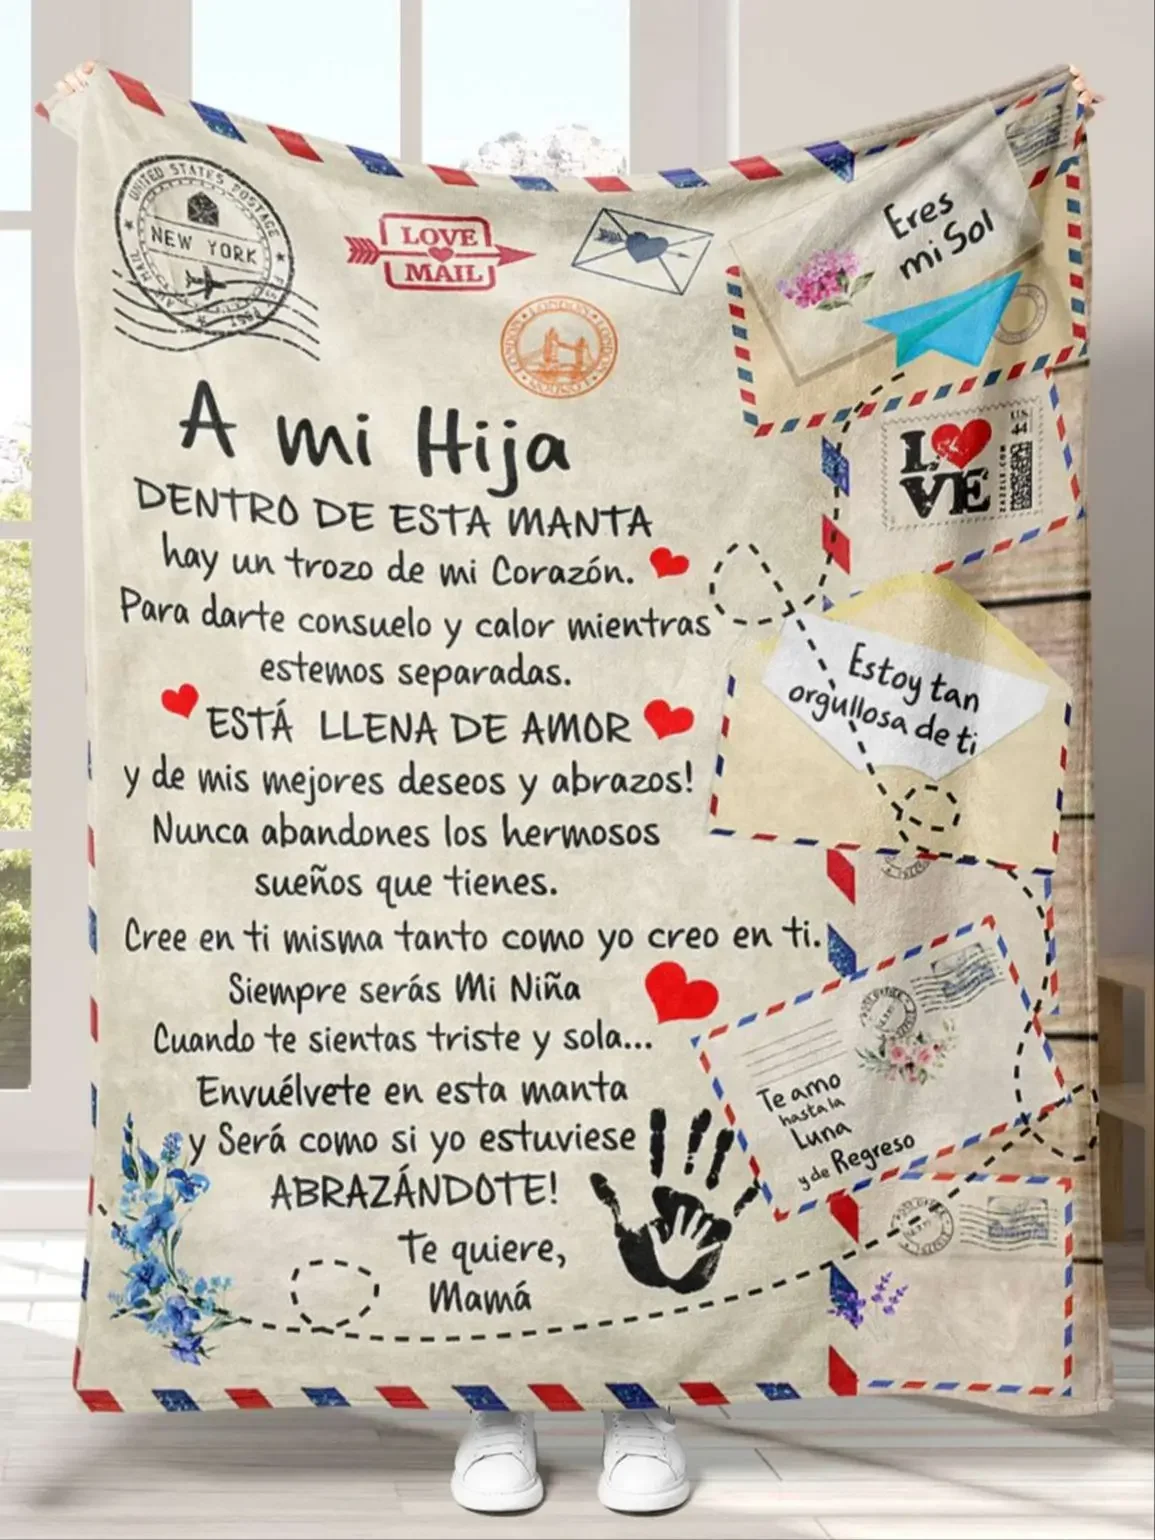 UNITED STATES POSTAGE
NEW YORK
LOVE
MAIL
LONDON · LONDON · LONDON
Eres
mi Sol
US
44
LOVE
ZAZZLE.COM
A mi Hija
DENTRO DE ESTA MANTA
hay un trozo de mi Corazón.
Para darte consuelo y calor mientras
estemos separadas.
ESTÁ LLENA DE AMOR
y de mis mejores deseos y abrazos!
Nunca abandones los hermosos
sueños que tienes.
Cree en ti misma tanto como yo creo en ti.
Siempre serás Mi Niña
Cuando te sientas triste y sola...
Envuélvete en esta manta
y Será como si yo estuviese
ABRAZÁNDOTE!
Te quiere,
Mamá
Estoy tan
orgullosa de ti
Te amo
hasta la
Luna
y de Regreso